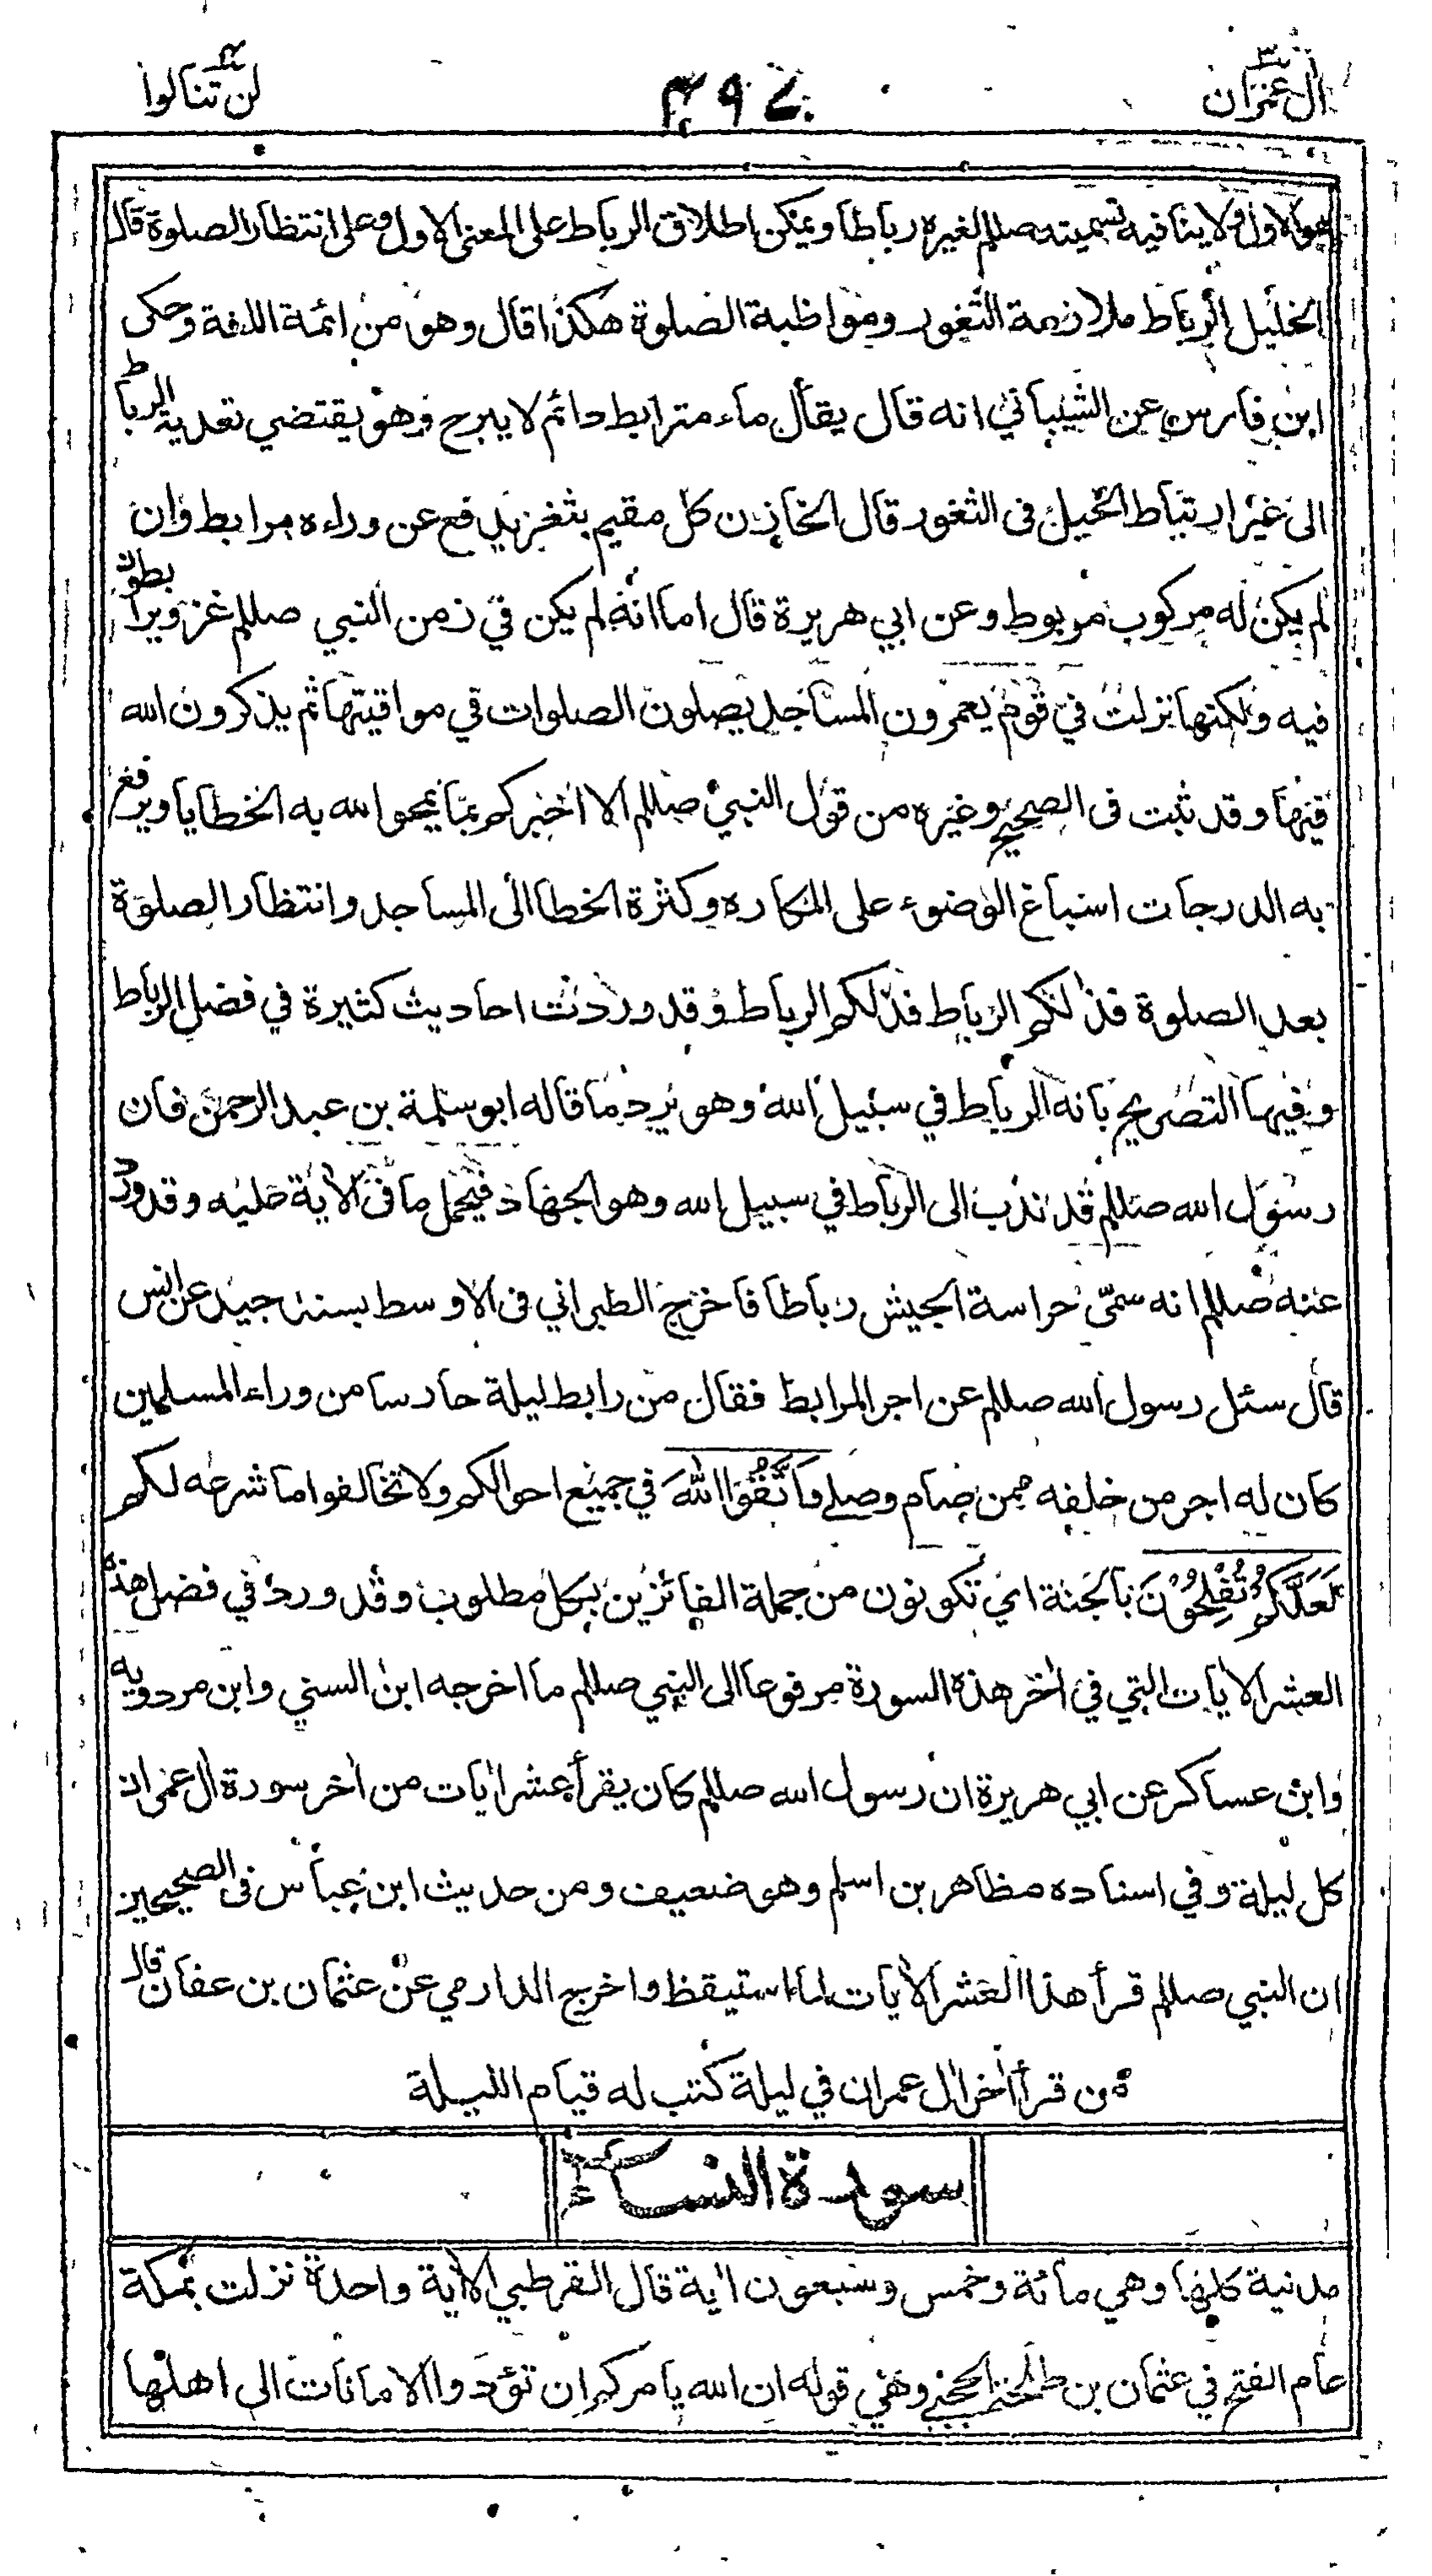 اٰل عمران ٣
٤٩٧
لن تنالوا ٤
هو الاول ولا ينافيه تسميته صللم لغيره رباطا ويمكن اطلاق الرباط على المعنى الاول وعلى انتظار الصلوة قال
الخليل الرباط ملازمة الثغور ومواظبة الصلوة هكذا قال وهو من ائمة اللغة وحكى
ابن فارس عن الشيباني انه قال يقال ماء مترابط دائم لا يبرح وهو يقتضي تعدية الرباط
الى غير ارتباط الخيل فى الثغور قال الخازن كل مقيم بثغر يدفع عن وراءه مرابط وان
لم يكن له مركوب مربوط وعن ابي هريرة قال اما انه لم يكن في زمن النبي صللم غزو يرابطون
فيه ولكنها نزلت في قوم يعمرون المساجد يصلون الصلوات في مواقيتها ثم يذكرون الله
فيها وقد ثبت فى الصحيح وغيره من قول النبي صللم الا اخبركم بما يمحوا لله به الخطايا ويرفع
به الدرجات اسباغ الوضوء على المكاره وكثرة الخطا الى المساجد وانتظار الصلوة
بعد الصلوة فذلكم الرباط فذلكم الرباط وقد وردت احاديث كثيرة في فضل الرباط
وفيها التصريح بانه الرباط في سبيل الله وهو يرد ما قاله ابو سلمة بن عبد الرحمن فان
رسول الله صللم قد ندب الى الرباط في سبيل الله وهو الجهاد فيحمل ما فى الاية عليه وقد ورد
عنه صللم انه سمى حراسة الجيش رباطا فاخرج الطبراني فى الاوسط بسند جيد عن انس
قال سئل رسول الله صللم عن اجر المرابط فقال من رابط ليلة حارسا من وراء المسلمين
كان له اجر من خلفه ممن صام وصلى وَاتَّقُوا اللّٰهَ في جميع احوالكم ولا تخالفوا ما شرعه لكم
لَعَلَّكُمْ تُفْلِحُوْنَ بالجنة اي تكونون من جملة الفائزين بكل مطلوب وقد ورد في فضل هذه
العشر الايات التي في اٰخر هذه السورة مرفوعا الى النبي صللم ما اخرجه ابن السني وابن مردويه
وابن عساكر عن ابي هريرة ان رسول الله صللم كان يقرأ عشر اٰيات من اٰخر سورة اٰل عمران
كل ليلة وفي اسناده مظاهر بن اسلم وهو ضعيف ومن حديث ابن عباس فى الصحيحين
ان النبي صللم قرأ هذا العشر الاٰيات لما استيقظ واخرج الدارمي عن عثمان بن عفان قال
من قرأ اٰخر اٰل عمران في ليلة كتب له قيام الليلة
سورة النساء
مدنية كلها وهي مائة وخمس وسبعون اٰية قال القرطبي الا اٰية واحدة نزلت بمكة
عام الفتح في عثمان بن طلحة الحجبي وهي قوله ان الله يامركم ان تؤدوا الامانات الى اهلها